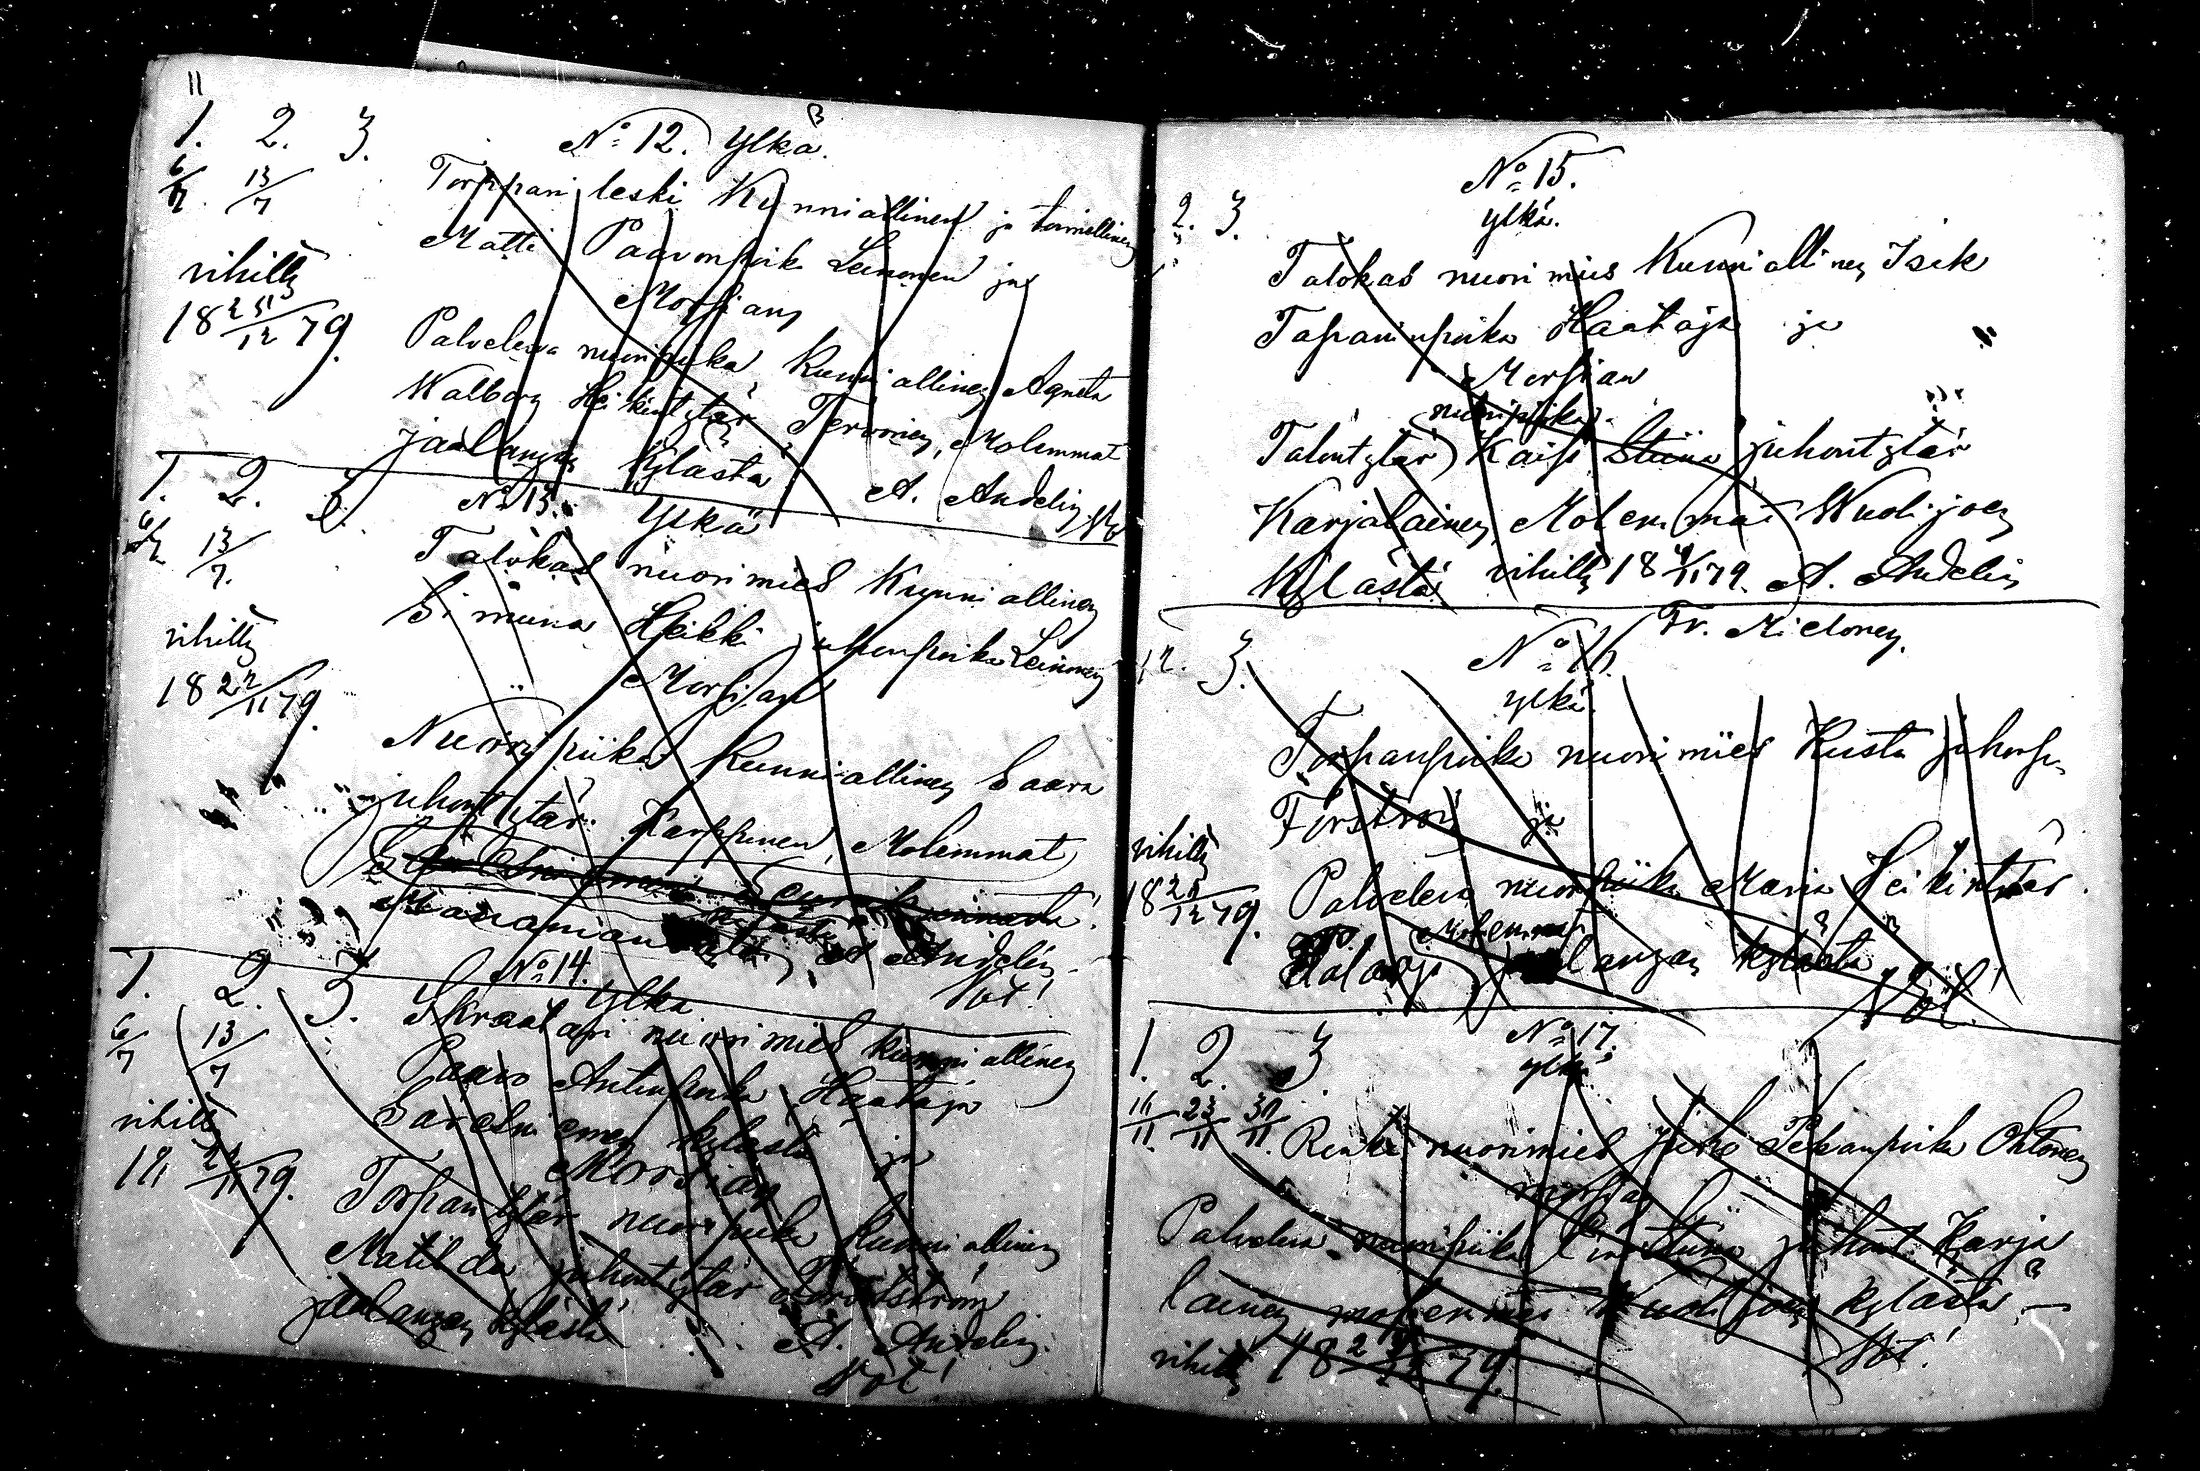 11
1. 2. 3. No 12. Ylkä.
6/7. 13/7 Torppari leski Kunniallinen ja toimellinen
Matti Paavonpoik Leinonen ja
vihitty Morsian
18 /12 79. Palveleva nuoripiika, Kunniallinen Agneta
Walborg Heikintytär Tervonen, Molemmat
jaalangan kylästä
A. Andelin
1. 2. 3. No 13. Ylkä
13/7. Talokas nuorimies Kunniallinen
Simuna Heikki juhonpoika Leinonen
vihitty Morsian
18 /11 79.
Nuori piika Kunniallinen Saara
juhontytär Karppinen, Molemmat
A. Andelin
Not!
1. 2. 3. No 14. Ylkä
6/7 13/7 Skraatari nuorimies kunniallinen
Paavo Antinpoika Haataja
vihitty kylästä ja
/11 79. Morsian
Torpantytär nuoripiika Kunniallinen
Matilda juhontytär
jaalangan kylästä
A. Andelin.
Not!
No 15.
2. 3. ylkä.
Talokas nuorimies Kunniallinen Isak
Tapaninpoika Haataja ja
Morsian
nuoripiika
Talontytär Kaisa Stiina juhontytär
Karjalainen, Molemmat Wuolijoen
Kylästä vihitty 18 /11 79. A. Andelin
Fr. Mieloney.
2. 3. No 16.
ylkä.
Torpanpoika nuorimies Kusta juhonp.
Förström ja
vihitty
18 /12 79. Palveleva nuoripiika Maria Heikintytär
Molemmat
jaalangan kylästä
Not.
1. 2. 3. No 17.
ylkä
16/11 23/11 30/11. Renki nuorimies juho Pekanpoika Ohtonen
morsian
Palveleva nuoripiika Stiina juhont. Karja
lainen molemmat Wuolijoen kylästä. —
vihitty 18 79. Not!